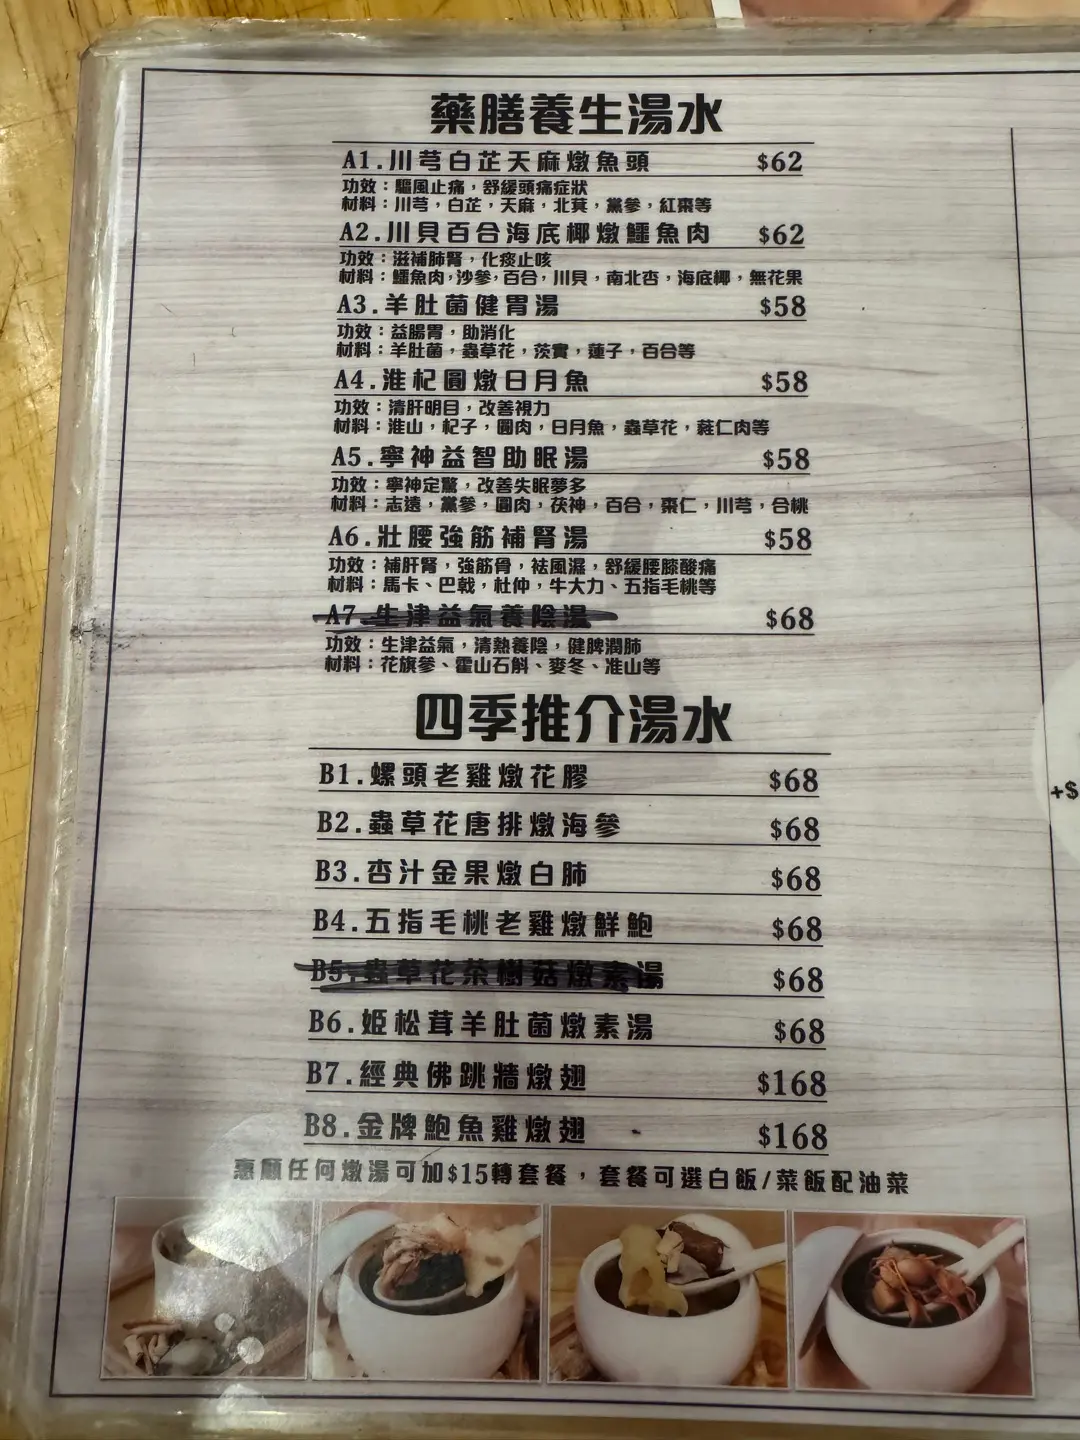 藥膳養生湯水
A1.川芎白芷天麻燉魚頭 $62
功效：驅風止痛，舒緩頭痛症狀
材料：川芎，白芷，天麻，北萁，黨參，紅棗等
A2.川貝百合海底椰燉鱷魚肉 $62
功效：滋補肺腎，化痰止咳
材料：鱷魚肉，沙參，百合，川貝，南北杏，海底椰，無花果
A3.羊肚菌健胃湯 $58
功效：益腸胃，助消化
材料：羊肚菌，蟲草花，茨實，蓮子，百合等
A4.淮杞圓燉日月魚 $58
功效：清肝明目，改善視力
材料：淮山，杞子，圓肉，日月魚，蟲草花，蕤仁肉等
A5.寧神益智助眠湯 $58
功效：寧神定驚，改善失眠夢多
材料：志遠，黨參，圓肉，茯神，百合，棗仁，川芎，合桃
A6.壯腰強筋補腎湯 $58
功效：補肝腎，強筋骨，祛風濕，舒緩腰膝酸痛
材料：馬卡、巴戟，杜仲，牛大力、五指毛桃等
A7.生津益氣養陰湯 $68
功效：生津益氣，清熱養陰，健脾潤肺
材料：花旗參、霍山石斛、麥冬、准山等
四季推介湯水
B1.螺頭老雞燉花膠 $68
B2.蟲草花唐排燉海參 $68
B3.杏汁金果燉白肺 $68
B4.五指毛桃老雞燉鮮鮑 $68
B5.蟲草花茶樹菇燉素湯 $68
B6.姬松茸羊肚菌燉素湯 $68
B7.經典佛跳牆燉翅 $168
B8.金牌鮑魚雞燉翅 $168
惠顧任何燉湯可加$15轉套餐，套餐可選白飯/菜飯配油菜
+$